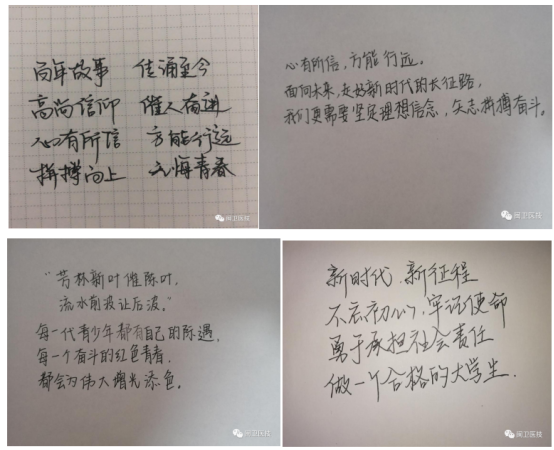 百年故事 传诵至今
高尚信仰 催人奋进
心有所信 方能行远
拼搏向上 无悔青春
闽卫医技
心有所信，方能行远。
面向未来，走好新时代的长征路，
我们更需要坚定理想信念，矢志拼搏奋斗。
闽卫医技
“芳林新叶催陈叶，
流水前波让后波。”
每一代青少年都有自己的际遇，
每一个奋斗的红色青春，
都会为伟大增光添色。
闽卫医技
新时代、新征程
不忘初心，牢记使命
勇于承担社会责任
做一个合格的大学生.
闽卫医技